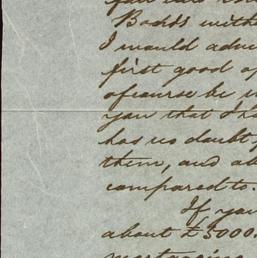 Bonds with
I would adv
first good o
ofcourse be
you that I ha
has no doubt
them, and ab
compared to.
If you
about £5000.